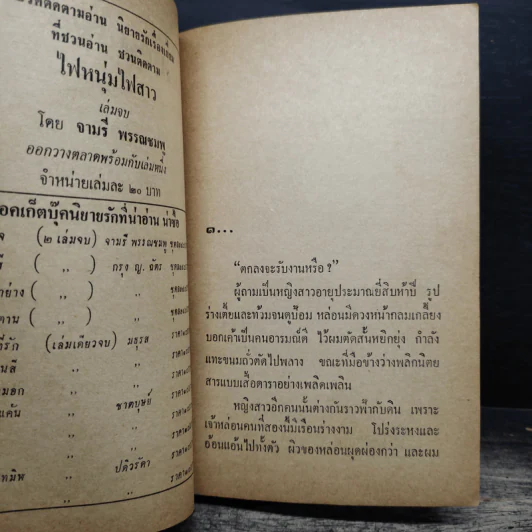 ติดตามอ่าน นิยายรักเรื่องเยี่ยม
ที่ชวนอ่าน ชวนติดตาม
ไฟหนุ่มไฟสาว
เล่มจบ
โดย จามรี พรรณชมพู
ออกวางตลาดพร้อมกับเล่มหนึ่ง
จำหน่ายเล่มละ ๒๐ บาท
อคเก็ตบุ๊คนิยายรักที่น่าอ่าน น่าซื้อ
จ (๒ เล่มจบ) จามรี พรรณชมพู
ร์ ( ,, ) กรุง ญ. ฉัตร
อย่าง ( ,, ) ,,
ตาน ( ,, ) ,,
ที่รัก (เล่มเดียวจบ) มธุรส
,, ,,
มอก ,, ,,
แค้น ,, ชาตบุษย์
,, ,,
,, ,,
ทมิพ ,, ปติวรัดา
,, ,,
๑...
"ตกลงจะรับงานหรือ ?"
ผู้ถามเป็นหญิงสาวอายุประมาณยี่สิบห้าปี รูป
ร่างเตี้ยและท้วมจนดูป้อม หล่อนมีดวงหน้ากลมเกลี้ยง
บอกเค้าเป็นคนอารมณ์ดี ไว้ผมตัดสั้นหยิกยุ่ง กำลัง
แทะขนมถั่วตัดไปพลาง ขณะที่มือข้างว่างพลิกนิตย
สารแบบเสื้อดาราอย่างเพลิดเพลิน
หญิงสาวอีกคนนั้นต่างกันราวฟ้ากับดิน เพราะ
เจ้าหล่อนคนที่สองนี้มีเรือนร่างงาม โปร่งระหงและ
อ้อนแอ้นไปทั้งตัว ผิวของหล่อนผุดผ่องกว่า และผม